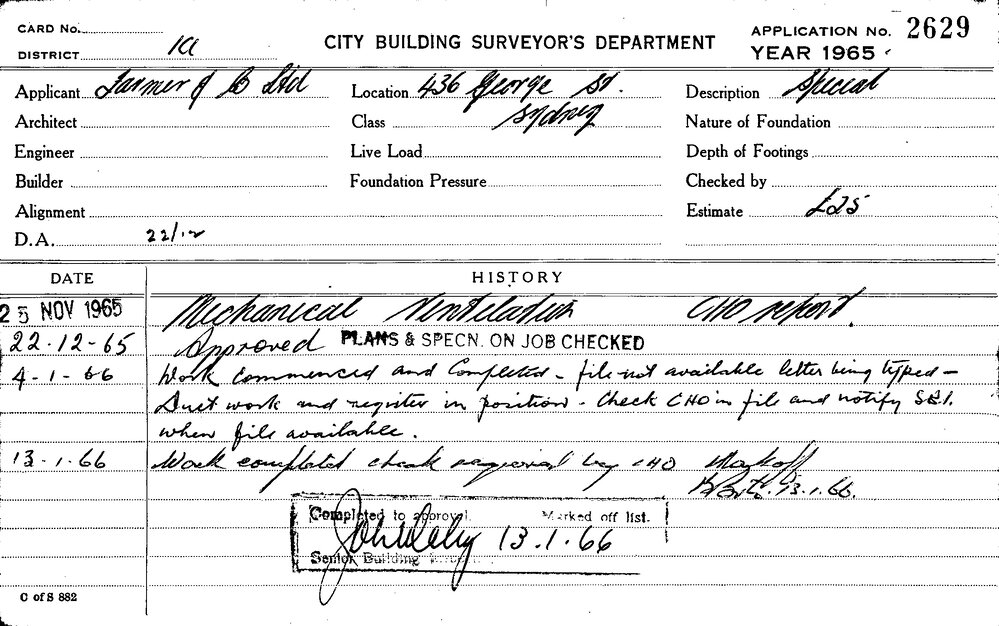 CARD No.
DISTRICT 1a
CITY BUILDING SURVEYOR'S DEPARTMENT
APPLICATION No. 2629
YEAR 1965
Applicant Farmer & Co Ltd
Location 436 George St.
Description Special
Architect
Class Sydney
Nature of Foundation
Engineer
Live Load
Depth of Footings
Builder
Foundation Pressure
Checked by
Alignment
Estimate £25
D.A. 22/12
DATE
HISTORY
25 NOV 1965 Mechanical Ventilation CHO report.
22-12-65 Approved PLANS & SPECN. ON JOB CHECKED
4-1-66 Work commenced and Completed - file not available letter being typed -
Duct work and register in position - Check CHO in file and notify SBI.
when file available.
13-1-66 Work completed check required by CHO
13.1.66.
Completed to approval. Marked off list.
13.1.66
Senior Building
C of S 882